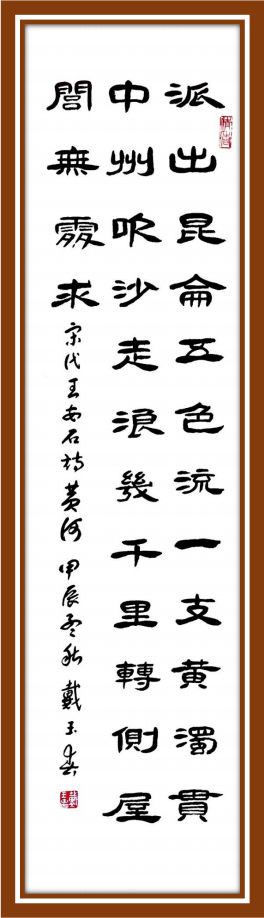 派出昆侖五色流一支黃濁貫
中州吹沙走浪幾千里轉側屋
閭無處求
宋代王安石詩黃河 甲辰秋 戴玉